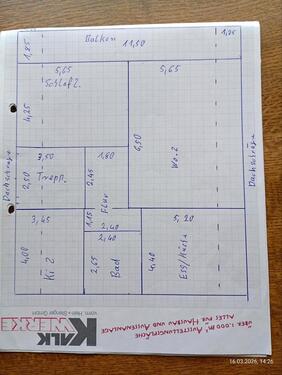 Balkon 11,50
1,25
1,85
5,65
5,65
Schlafz.
4,25
6,50
Wo.Z
3,50
1,80
Trepp.
2,50
2,45
Flur
Dachschräge
Dachschräge
3,45
1,15
2,40
2,40
5,20
4,00
Ki Z
2,65
Bad
4,40
Ess/Küche
KALK
WERKE
vorm. Hein + Stenger GmbH
ÜBER 1.000 m² AUSSTELLUNGSFLÄCHE
ALLES FÜR HAUSBAU UND AUSSENANLAGE
16.03.2026, 14:26